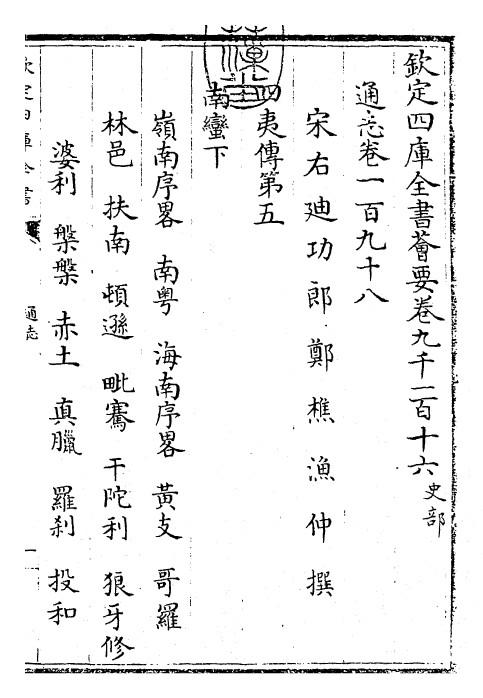 欽定四庫全書薈要卷九千一百十六 史部
通志卷一百九十八
宋右迪功郎鄭樵漁仲撰
四夷傳第五
南蠻下
嶺南序畧 南粵 海南序畧 黃支 哥羅
林邑 扶南 頓遜 毗騫 干陀利 狼牙修
婆利 槃槃 赤土 真臘 羅刹 投和
欽定四庫全書
通志
一